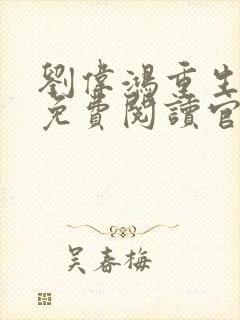 劉偉鴻重生
免費閱讀官
吴春梅